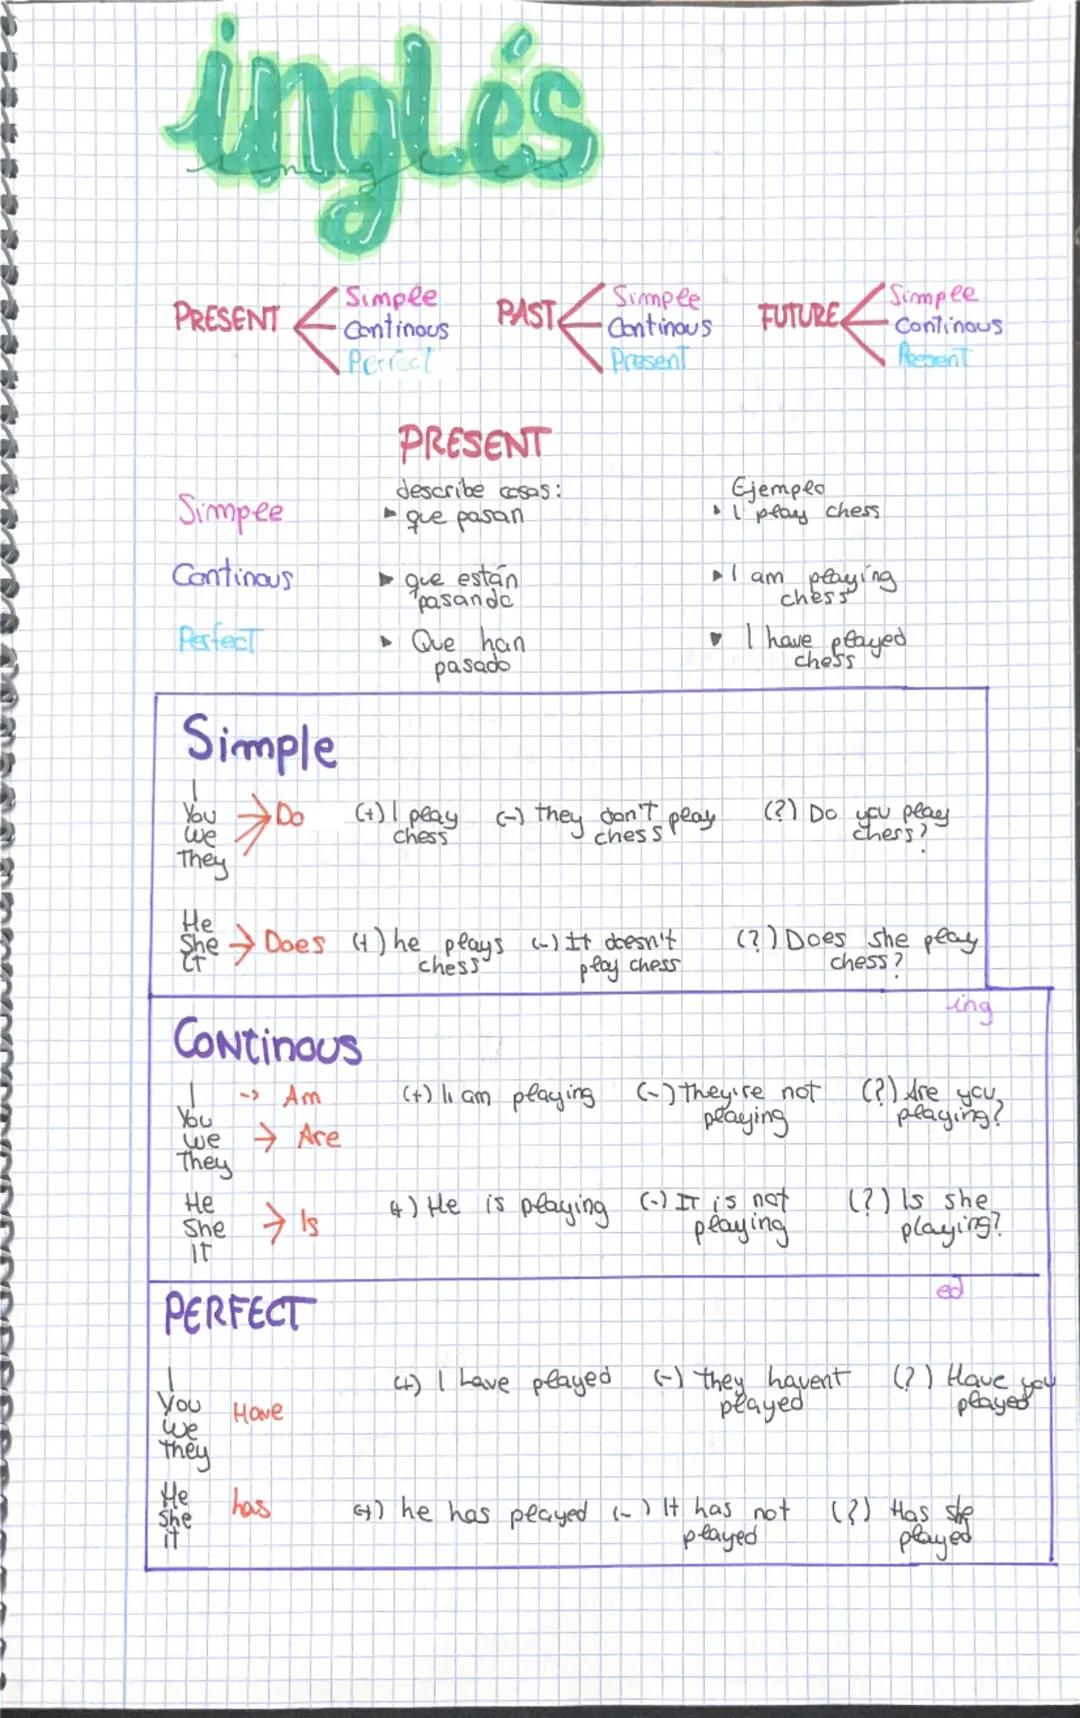 inglés
ingles
PRESENT Simple PAST Simple FUTURE Simple
Continous Continous Continous
Perfect Present Present
PRESENT
describe cosas: Ejemplo
Simple ▸ que pasan ▸ I play chess
Continous ▸ que están ▸ I am playing
pasando chess
Perfect ▸ Que han ▸ I have played
pasado chess
Simple
I
You → Do (+) I play (-) they don't play (?) Do you play
we chess chess chess?
they
He
She → Does (+) he plays (-) It doesn't (?) Does she play
IT chess play chess chess?
ing
Continous
I -> Am (+) I am playing (-) they're not (?) Are you
You playing playing?
we → Are
They
He (+) He is playing (-) IT is not (?) Is she
She → Is playing playing?
IT
ed
PERFECT
I (+) I have played (-) they havent (?) Have you
You Have played played
we
they
He has (+) he has played (-) It has not (?) Has she
She played played
iT